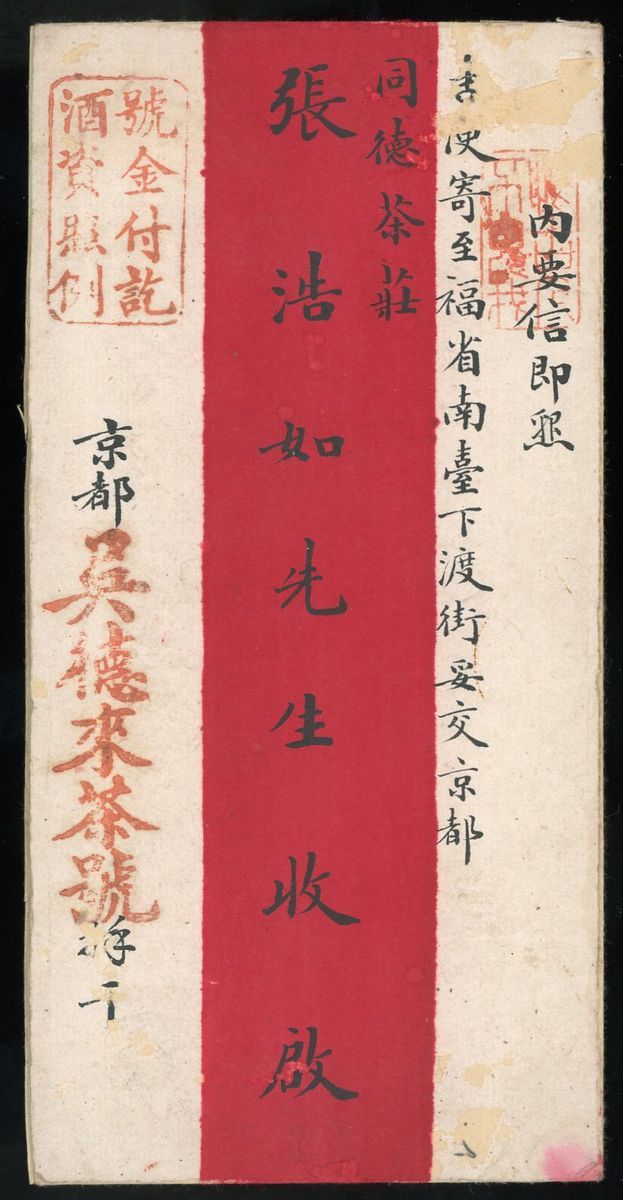 內要信即照
便寄至福省南臺下渡街妥交京都
同德茶莊
張浩如先生收啟
號金付訖
酒資照例
京都吳德來茶號緘